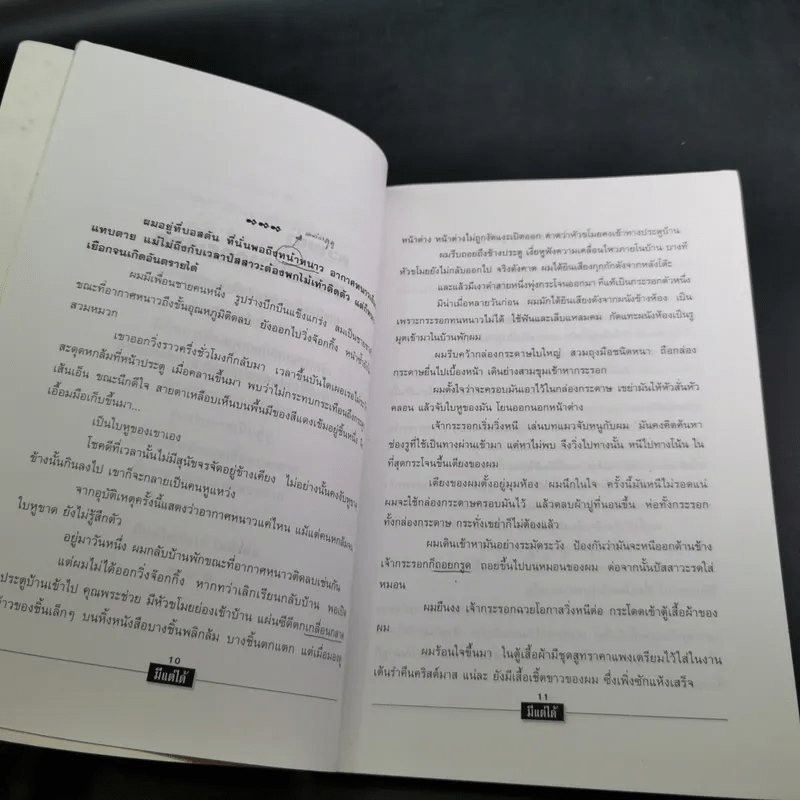 ผมอยู่ที่บอสตัน ที่นั่นพอถึงหน้าหนาว อากาศหนาวเย็น
แทบตาย แม้ไม่ถึงกับเวลาปัสสาวะต้องพกไม้เท้าติดตัว
เยือกจนเกิดอันตรายได้
ผมมีเพื่อนชายคนหนึ่ง รูปร่างบึกบึนแข็งแกร่ง
ขณะที่อากาศหนาวถึงขั้นอุณหภูมิติดลบ ยังออกไปวิ่งจ๊อกกิ้ง
สวมหมวก
เขาออกวิ่งราวครึ่งชั่วโมงก็กลับมา เวลาขึ้นบันไดเผอเรอ
สะดุดหกล้มที่หน้าประตู เมื่อคลานขึ้นมา พบว่าไม่กระทบกระเทือนถึงกระดูก
เส้นเอ็น ขณะนึกดีใจ สายตาเหลือบเห็นบนพื้นมีของสีแดงเข้มอยู่ชิ้นหนึ่ง
เอื้อมมือเก็บขึ้นมา...
เป็นใบหูของเขาเอง
โชคดีที่เวลานั้นไม่มีสุนัขจรจัดอยู่ข้างเคียง ไม่อย่างนั้นคงงับหู
ข้างนั้นกินลงไป เขาก็จะกลายเป็นคนหูแหว่ง
จากอุบัติเหตุครั้งนี้แสดงว่าอากาศหนาวแค่ไหน แม้แต่คนหกล้มจน
ใบหูขาด ยังไม่รู้สึกตัว
อยู่มาวันหนึ่ง ผมกลับบ้านพักขณะที่อากาศหนาวติดลบเช่นกัน
แต่ผมไม่ได้ออกวิ่งจ๊อกกิ้ง หากทว่าเลิกเรียนกลับบ้าน พอเปิด
ประตูบ้านเข้าไป คุณพระช่วย มีหัวขโมยย่องเข้าบ้าน แผ่นซีดีตกเกลื่อนกลาด
ข้าวของชิ้นเล็กๆ บนหิ้งหนังสือบางชิ้นพลิกล้ม บางชิ้นตกแตก แต่เมื่อมองดู
10
มีแต่ได้
หน้าต่าง หน้าต่างไม่ถูกงัดแงะเปิดออก คาดว่าหัวขโมยคงเข้าทางประตูบ้าน
ผมรีบถอยถึงข้างประตู เงี่ยหูฟังความเคลื่อนไหวภายในบ้าน บางที
หัวขโมยยังไม่กลับออกไป จริงดังคาด ผมได้ยินเสียงกุกกักดังจากหลังโต๊ะ
และแล้วมีเงาดำสายหนึ่งพุ่งกระโจนออกมา ที่แท้เป็นกระรอกตัวหนึ่ง
มิน่าเมื่อหลายวันก่อน ผมมักได้ยินเสียงดังจากผนังข้างห้อง เป็น
เพราะกระรอกทนหนาวไม่ได้ ใช้ฟันและเล็บแหลมคม กัดแทะผนังห้องเป็นรู
มุดเข้ามาในบ้านพักผม
ผมรีบคว้ากล่องกระดาษใบใหญ่ สวมถุงมือชนิดหนา ถือกล่อง
กระดาษยื่นไปเบื้องหน้า เดินย่างสามขุมเข้าหากระรอก
ผมตั้งใจว่าจะครอบมันเอาไว้ในกล่องกระดาษ เขย่ามันให้หัวสั่นหัว
คลอน แล้วจับใบหูของมัน โยนออกนอกหน้าต่าง
เจ้ากระรอกเริ่มวิ่งหนี เล่นบทแมวจับหนูกับผม มันคงคิดค้นหา
ช่องรูที่ใช้เป็นทางผ่านเข้ามา แต่หาไม่พบ จึงวิ่งไปทางนั้น หนีไปทางโน้น ใน
ที่สุดกระโจนขึ้นเตียงของผม
เตียงของผมตั้งอยู่มุมห้อง ผมนึกในใจ ครั้งนี้มันหนีไม่รอดแน่
ผมจะใช้กล่องกระดาษครอบมันไว้ แล้วตลบผ้าปูที่นอนขึ้น ห่อทั้งกระรอก
ทั้งกล่องกระดาษ กระทั่งเขย่าก็ไม่ต้องแล้ว
ผมเดินเข้าหามันอย่างระมัดระวัง ป้องกันว่ามันจะหนีออกด้านข้าง
เจ้ากระรอกก็ถอยกรูด ถอยขึ้นไปบนหมอนของผม ต่อจากนั้นปัสสาวะรดใส่
หมอน
ผมยืนงง เจ้ากระรอกฉวยโอกาสวิ่งหนีต่อ กระโดดเข้าตู้เสื้อผ้าของ
ผม
ผมร้อนใจขึ้นมา ในตู้เสื้อผ้ามีชุดสูทราคาแพงเตรียมไว้ใส่ในงาน
เต้นรำคืนคริสต์มาส แน่ละ ยังมีเสื้อเชิ้ตขาวของผม ซึ่งเพิ่งซักแห้งเสร็จ
11
มีแต่ได้